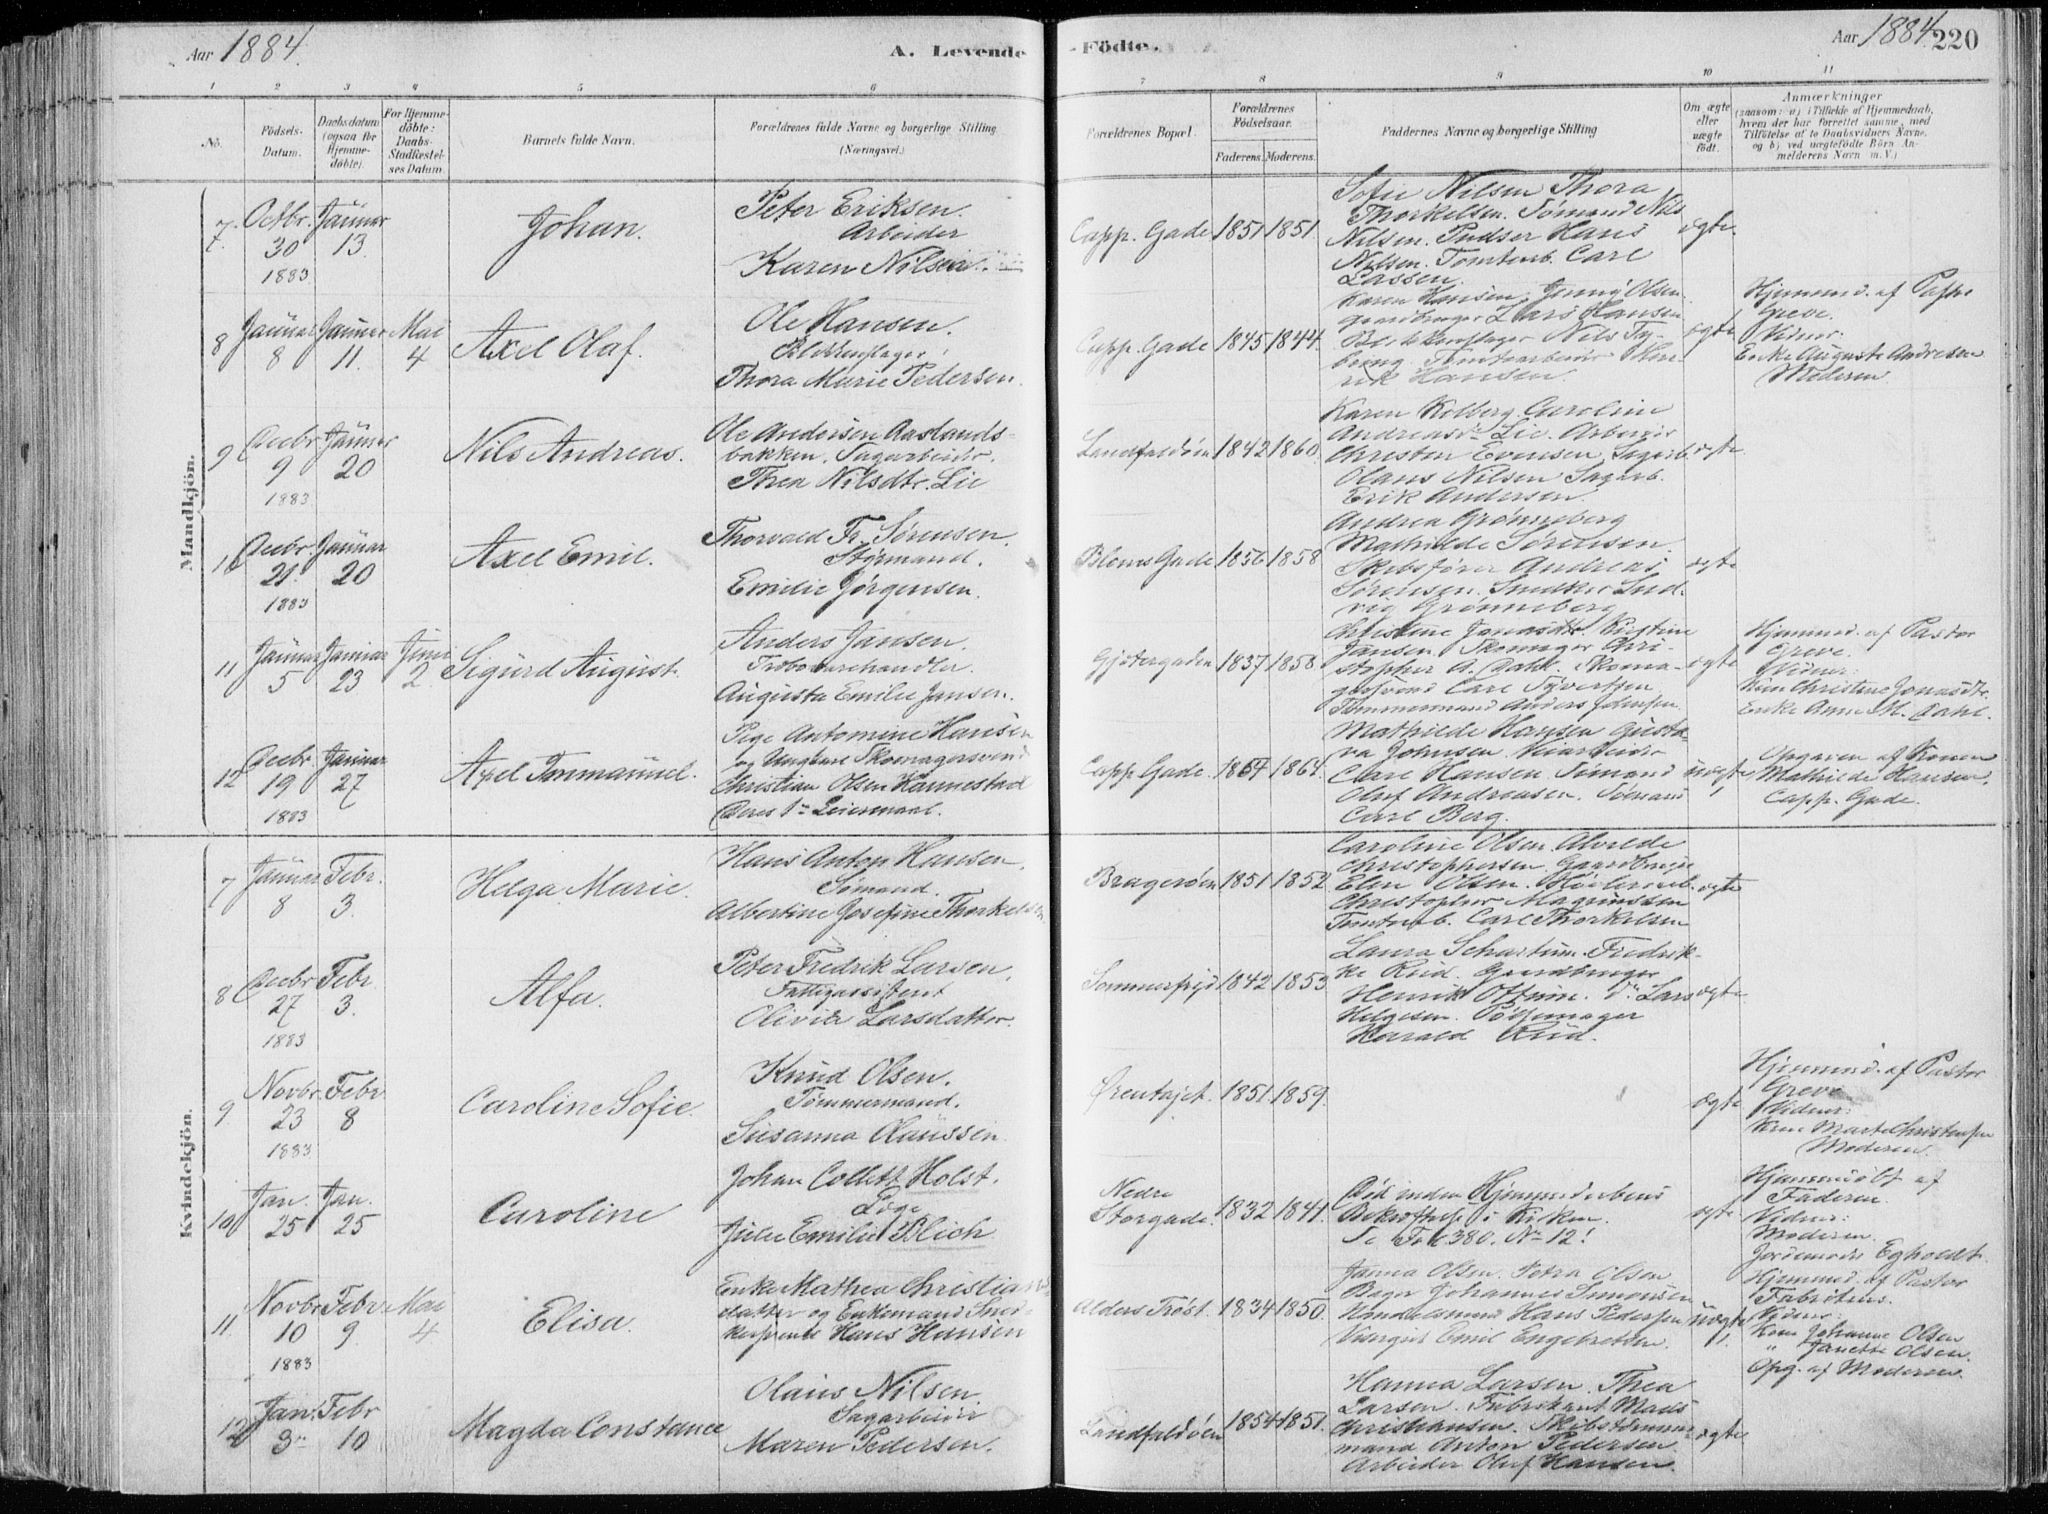 Aar 1884.
A. Levende
-Födte.
Aar 1884 220
1 2 3 4 5 6 7 8 9 10 11
No.
Födsels-Datum.
Daabsdatum (ogsaa for Hjemme-döbte).
For Hjemme-döbte: Daabs-Stadfæstel-ses Datum.
Barnets fulde Navn.
Forældrenes fulde Navne og borgerlige Stilling (Næringsvei.)
Forældrenes Bopæl.
Forældrenes Födselsaar.
Faderens. Moderens.
Faddernes Navne og borgerlige Stilling
Om ægte eller uægte födt.
Anmærkninger
(saasom: a) i Tilfælde af Hjemmedaab, hvem der har forrettet samme, med Tilföielse af to Daabsvidners Navne, og b) ved uægtefödte Börn An-melderens Navn m. V.)
Mandkjön.
7 Octbr. 30 1883 Januar 13
Johan.
Peter Eriksen.
Arbeider
Karen Nilsen.
Capp. Gade 1851 1851
Sofie Nilsen Thora
Thorkelsen. Sømand Nils
Nilsen. Pudser Hans
Nilsen. Tomtearb. Carl
Lassen.
ægte
8 Januar 8 Januar 11. Mai 4
Axel Olaf.
Ole Hansen.
Blikkenslager
Thora Marie Pedersen.
Capp. Gade 1845 1844.
Karen Hansen, Jenny Olsen
Gaardbruger Lars Hansen
Blikkenslager Nils Ty-
bring. Tomtearbeider Hen-
rik Hansen.
ægte
Hjemmed. af Pastor
Greve.
Vidner:
Enke Auguste Andresen
Moderen
9 Decbr 9 1883 Januar 20
Nils Andreas.
Ole Andersen Aaslands-
bakken. Sagarbeider.
Thea Nilsdtr. Lie
Landfaldøen 1842 1860
Karen Kolberg. Caroline
Andreasd. Lie. Arbeider
Christen Evensen, Sagarb.
Olaus Nilsen Sagarb.
Erik Andersen
ægte
10 Decbr. 21. 1883 Januar 20
Axel Emil.
Thorvald Fr. Sørensen.
Styrmand.
Emilie Jørgensen.
Bloms Gade 1856 1858
Andrea Grønneberg
Mathilde Sørensen.
Skibsfører Andreas
Sørensen. Snedker Lud-
vig Grønneberg
ægte
11 Januar 5 Januar 23 Juni 2.
Sigurd August.
Anders Jansen.
Augusta Emilie Jansen.
Gjetergaden 1837 1858
Christine Jonasdtr. Kirstine
Jansen. Skomager Chri-
stopher A. Dahl. Skoma-
gersvend Carl Syvertsen
Tømmermand Anders Johnsen
ægte
Hjemmed. af Pastor
Greve.
Vidner:
Kone Christine Jonasdtr.
Enke Anne M. Dahl.
12 Decbr 19 1883 Januar 27
Axel Immanuel.
Pige Antomine Hansen
og Ungkarl Skomagersvend
Christian Olsen Hannestad
Deres 1ste Leiermaal.
Capp. Gade 1864.
Mathilde Hansen Gusta-
va Johnsen
Carl Hansen. Sømand
Oluf Andreasen. Sømand
Carl Berg.
uægte 1
Opgaven af Konen
Mathilde Hansen.
Capp. Gade.
Kvindekjön.
7 Januar 8 Febr. 3.
Helga Marie.
Hans Anton Hansen.
Sømand.
Albertine Josefine Thorkelsen
Bragerøen 1851 1852
Caroline Olsen
Christophersen Gaardbruger
Elen Olsen.
Christopher Magnussen
Tomtearb. Carl Thorkelsen
ægte
8 Decbr 27 1883 Febr. 3.
Alfa.
Peter Fredrik Larsen.
Fattigassistent
Olivia Larsdatter.
Sommerfryd 1842 1853
Laura Schartum. Fredrik-
ke Riid. Gaardbruger
Henrik Do Lars
Helgesen. Pølsemager
Harald Riid.
ægte
9 Novbr. 23 1883 Febr 8
Caroline Sofie.
Knud Olsen.
Tømmermand.
Susanna Olaussen.
Ørentøjet. 1851 1859.
ægte
Hjemmed. af Pastor
Greve
Vidner:
Kone Marte Christensen
Moderen.
10 Jan. 25 Jan. 25
Caroline
Johan Collett Holst.
Læge
Julie Emilie Blich
Nedre
Storgade. 1832 1841.
Død inden Hjemmedaabens
Bekræftelse i Kirken.
Se Fol 380. No 12!
ægte
Hjemmedøbt af
Faderen.
Vidner:
Moderen.
Jordemoder Egholdt.
11 Novbr 10 1883 Febr 9 Mai 4
Elisa.
Enke Mathea Christians-
datter og Enkemand Sned-
kersvend Hans Hansen
Alders Trøst. 1834 1850.
Janna Olsen. Petra Olsen
Bager Johannes Simonsen
Handelsmand Hans Pedersen
Emil Engebretsen.
uægte 1.
Hjemmed. af Pastor
Fabritius.
Vidner:
Kone Johanne Olsen
" Janette Olsen.
Opg. af Moderen.
12 Jan. 3 Febr 10
Magda Constance
Olaus Nilsen
Sagarbeider
Maren Pedersen.
Landfaldøen 1854 1851.
Hanna Larsen. Thea
Larsen. Fabrikant Mads
Christiansen. Skibstømmer-
mand Anton Pedersen
Arbeider Oluf Hansen.
ægte